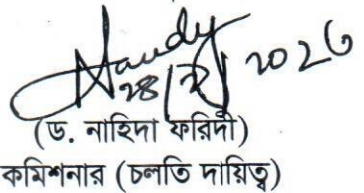 2026
(ড. নাহিদা ফরিদী)
কমিশনার (চলতি দায়িত্ব)